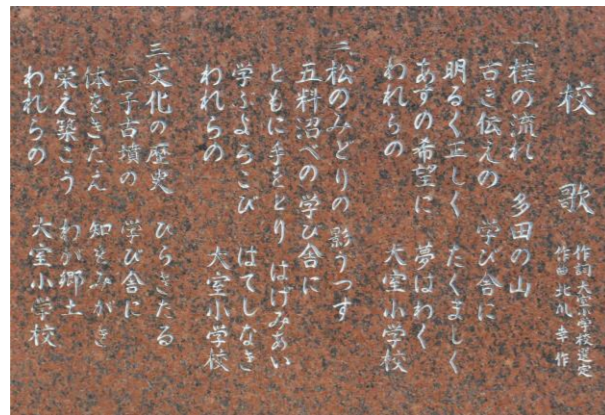 校歌
作詞 大室小学校選定
作曲 北爪 幸 作
一 桂の流れ 多田の山
古き伝えの 学び舎に
明るく正しく たくましく
あすの希望に 夢はわく
われらの 大室小学校
二 松のみどりの 影うつす
五料沼べの 学び舎に
ともに手をとり はげみあい
学ぶよろこび はてしなき
われらの 大室小学校
三 文化の歴史 ひらきたる
二子古墳の 学び舎に
体をきたえ 知をみがき
栄え築こう わが郷土
われらの 大室小学校